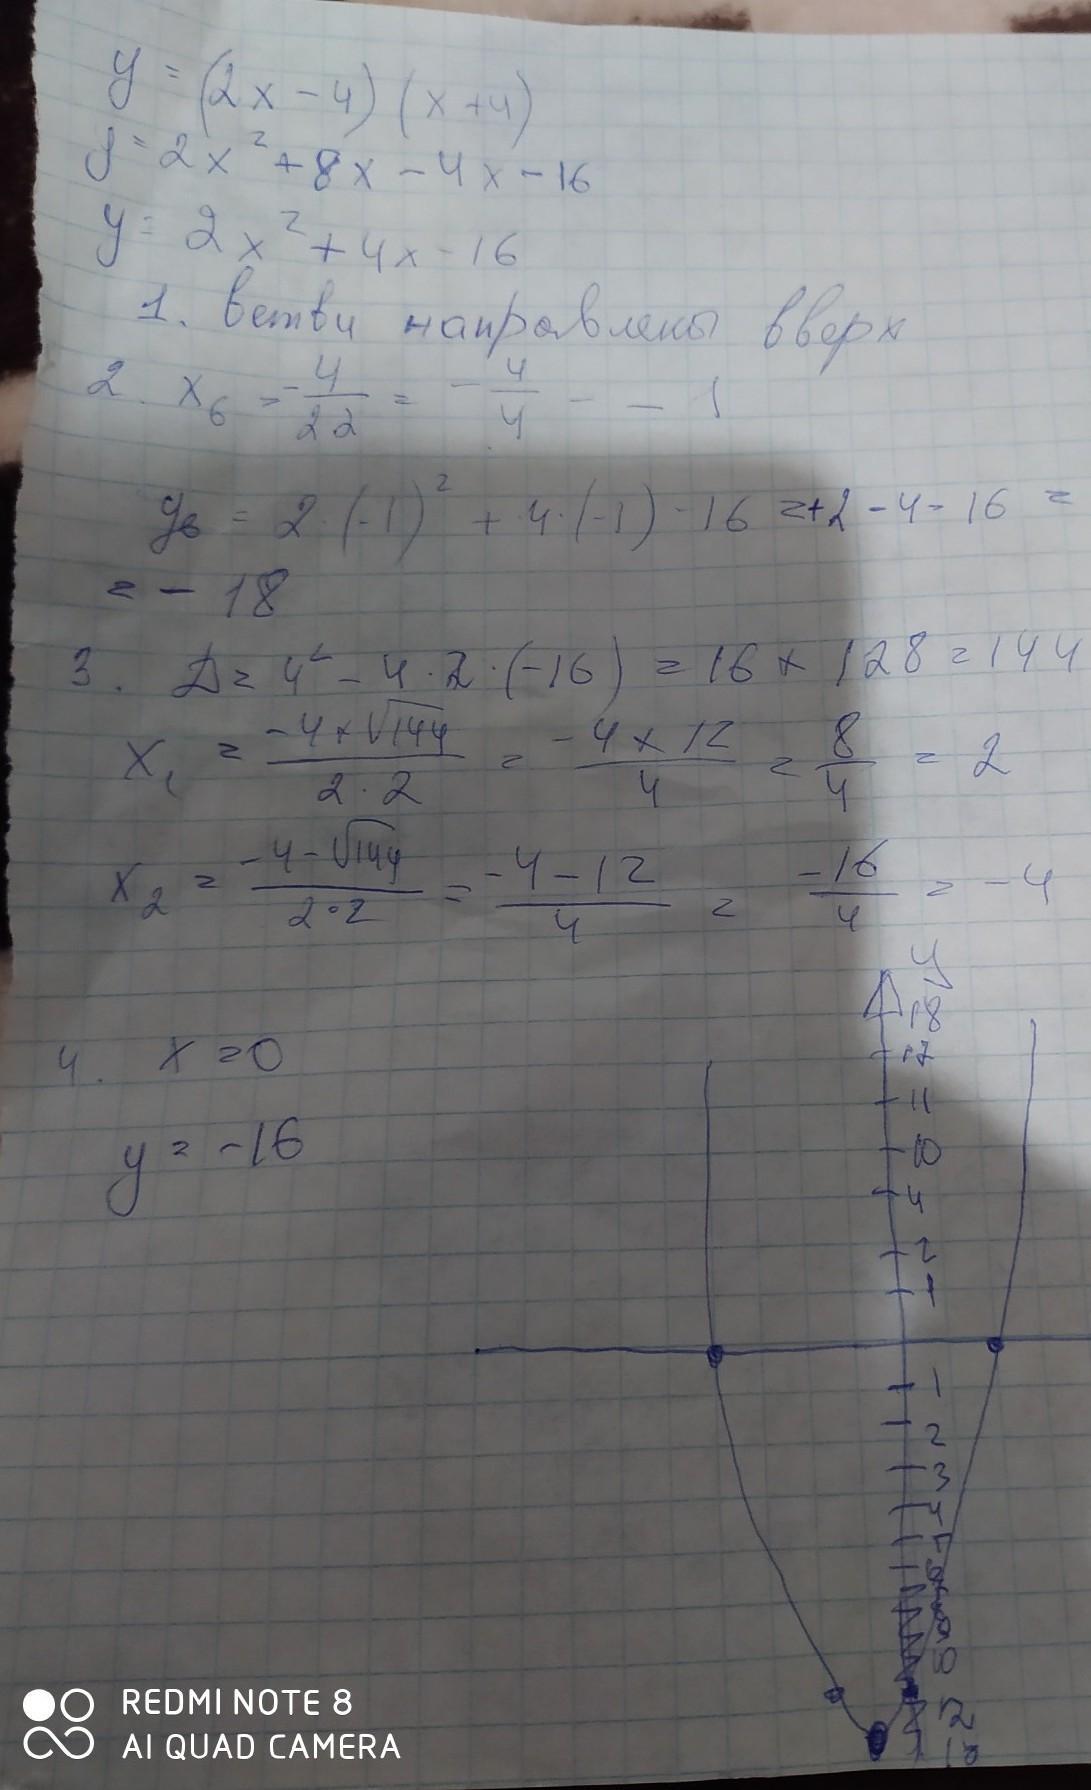 y = (2x - 4) (x + 4)
y = 2x² + 8x - 4x - 16
y = 2x² + 4x - 16
1. ветви направлены вверх
2. x в = -4/2·2 = -4/4 = -1
y в = 2·(-1)² + 4·(-1) - 16 = +2 - 4 - 16 =
= - 18
3. Д = 4² - 4·2·(-16) = 16 + 128 = 144
x₁ = -4+√144/2·2 = -4+12/4 = 8/4 = 2
x₂ = -4-√144/2·2 = -4-12/4 = -16/4 = -4
4. x = 0
y = -16
y
18
17
11
10
4
2
1
1
2
3
4
REDMI NOTE 8
AI QUAD CAMERA